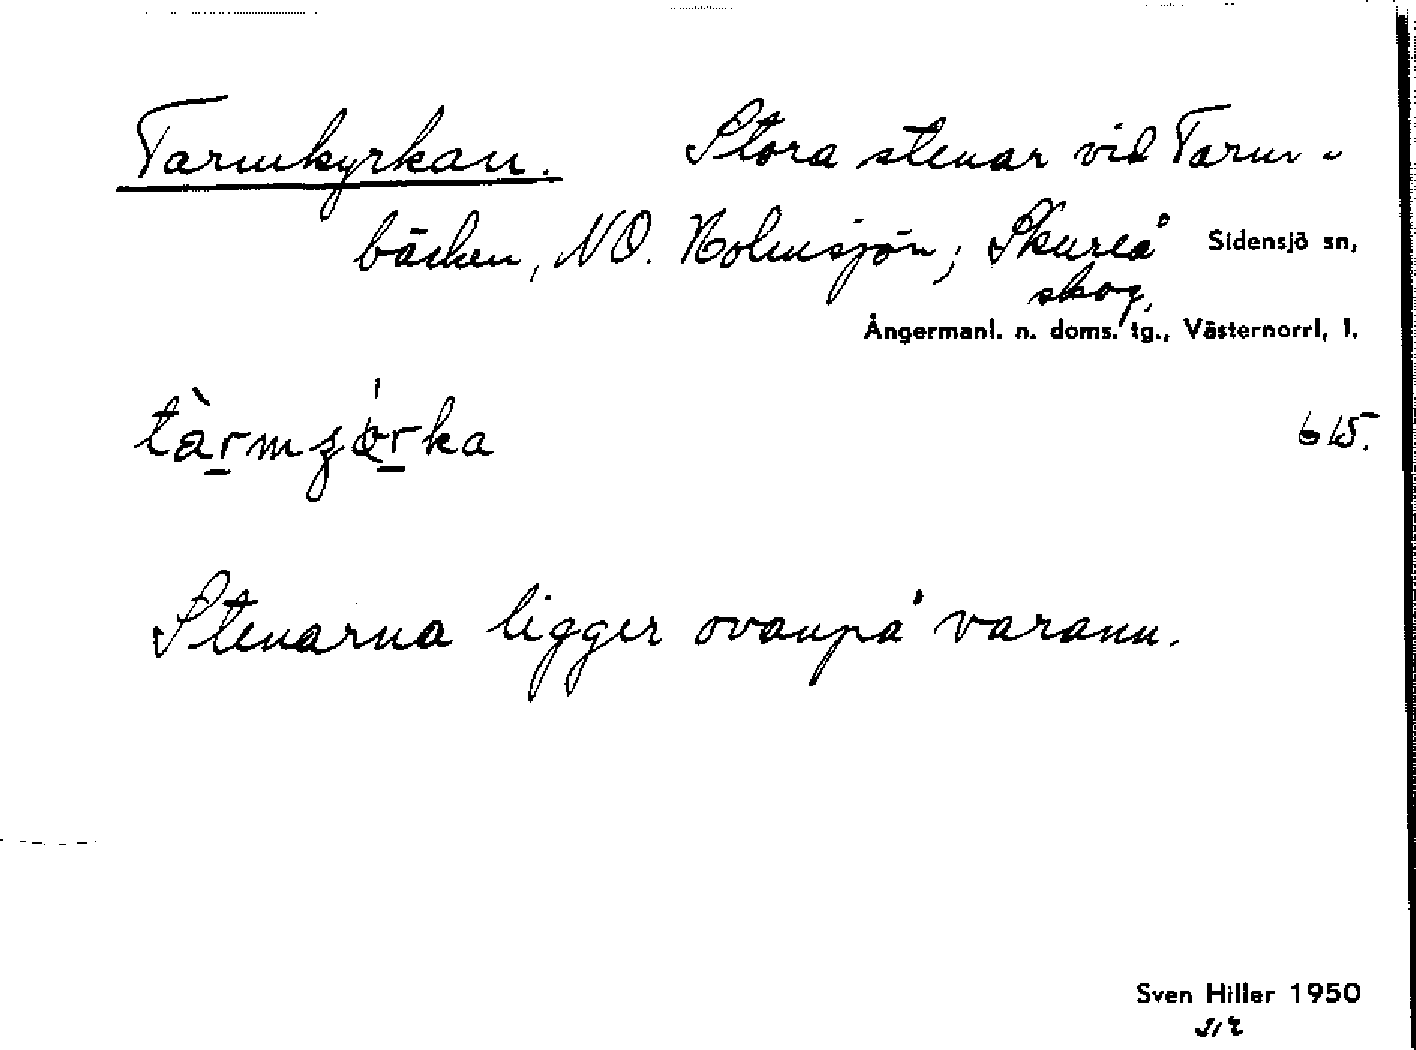 Tarmkyrkan. Stora stenar vid Tarm-
bäcken, NO. Holmsjön; Skureå Sidensjö sn,
skog,
Ångermanl. n. doms. tg., Västernorrl, l.
615.
Stenarna ligger ovanpå varann.
Sven Hiller 1950